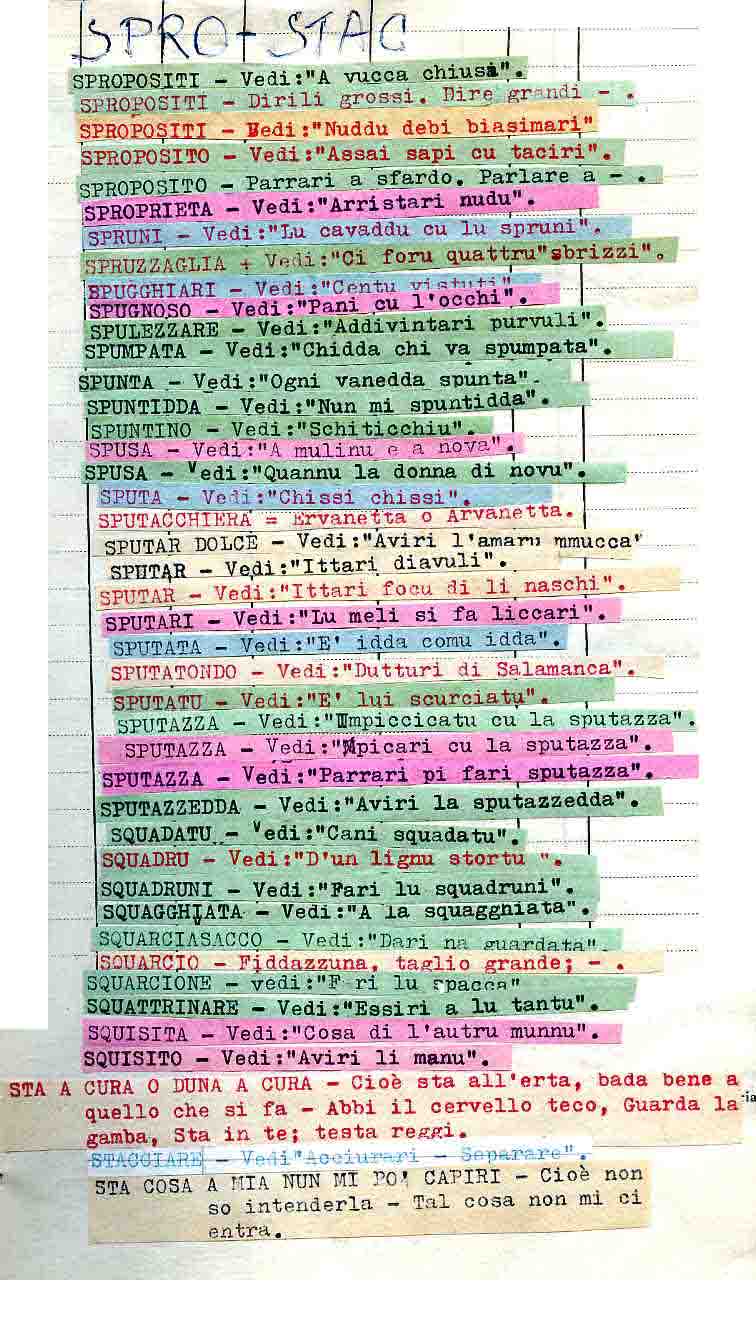 SPRO-STAC
SPROPOSITI - Vedi:"A vucca chiusa".
SPROPOSITI - Dirili grossi. Dire grandi - .
SPROPOSITI - Vedi:"Nuddu debi biasimari"
SPROPOSITO - Vedi:"Assai sapi cu taciri".
SPROPOSITO - Parrari a sfardo. Parlare a - .
SPROPRIETA - Vedi:"Arristari nudu".
SPRUNI - Vedi:"Lu cavaddu cu lu spruni".
SPRUZZAGLIA + Vedi:"Ci foru quattru"sbrizzi".
SPUGGHIARI - Vedi:"Centu vistuti"
SPUGNOSO - Vedi:"Pani cu l'occhi".
SPULEZZARE - Vedi:"Addivintari purvuli".
SPUMPATA - Vedi:"Chidda chi va spumpata".
SPUNTA - Vedi:"Ogni vanedda spunta".
SPUNTIDDA - Vedi:"Nun mi spuntidda".
SPUNTINO - Vedi:"Schiticchiu".
SPUSA - Vedi:"A mulinu e a nova".
SPUSA - Vedi:"Quannu la donna di novu".
SPUTA - Vedi:"Chissi chissi".
SPUTACCHIERA = Ervanetta o Arvanetta.
SPUTAR DOLCE - Vedi:"Aviri l'amaru mmucca"
SPUTAR - Vedi:"Ittari diavuli".
SPUTAR - Vedi:"Ittari focu di li naschi".
SPUTARI - Vedi:"Lu meli si fa liccari".
SPUTATA - Vedi:"E' idda comu idda".
SPUTATONDO - Vedi:"Dutturi di Salamanca".
SPUTATU - Vedi:"E' lui scurciatu".
SPUTAZZA - Vedi:"Impiccicatu cu la sputazza".
SPUTAZZA - Vedi:"Mpicari cu la sputazza".
SPUTAZZA - Vedi:"Parrari pi fari sputazza".
SPUTAZZEDDA - Vedi:"Aviri la sputazzedda".
SQUADATU - Vedi:"Cani squadatu".
SQUADRU - Vedi:"D'un lignu stortu ".
SQUADRUNI - Vedi:"Fari lu squadruni".
SQUAGGHIATA - Vedi:"A la squagghiata".
SQUARCIASACCO - Vedi:"Dari na guardata".
SQUARCIO - Fiddazzuna, taglio grande; - .
SQUARCIONE - vedi:"F ri lu spacca"
SQUATTRINARE - Vedi:"Essiri a lu tantu".
SQUISITA - Vedi:"Cosa di l'autru munnu".
SQUISITO - Vedi:"Aviri li manu".
STA A CURA O DUNA A CURA - Cioè sta all'erta, bada bene a
quello che si fa - Abbi il cervello teco, Guarda la
gamba, Sta in te; testa reggi.
STACCIARE - Vedi"Acciurari - Separare".
STA COSA A MIA NUN MI PO' CAPIRI - Cioè non
so intenderla - Tal cosa non mi ci
entra.